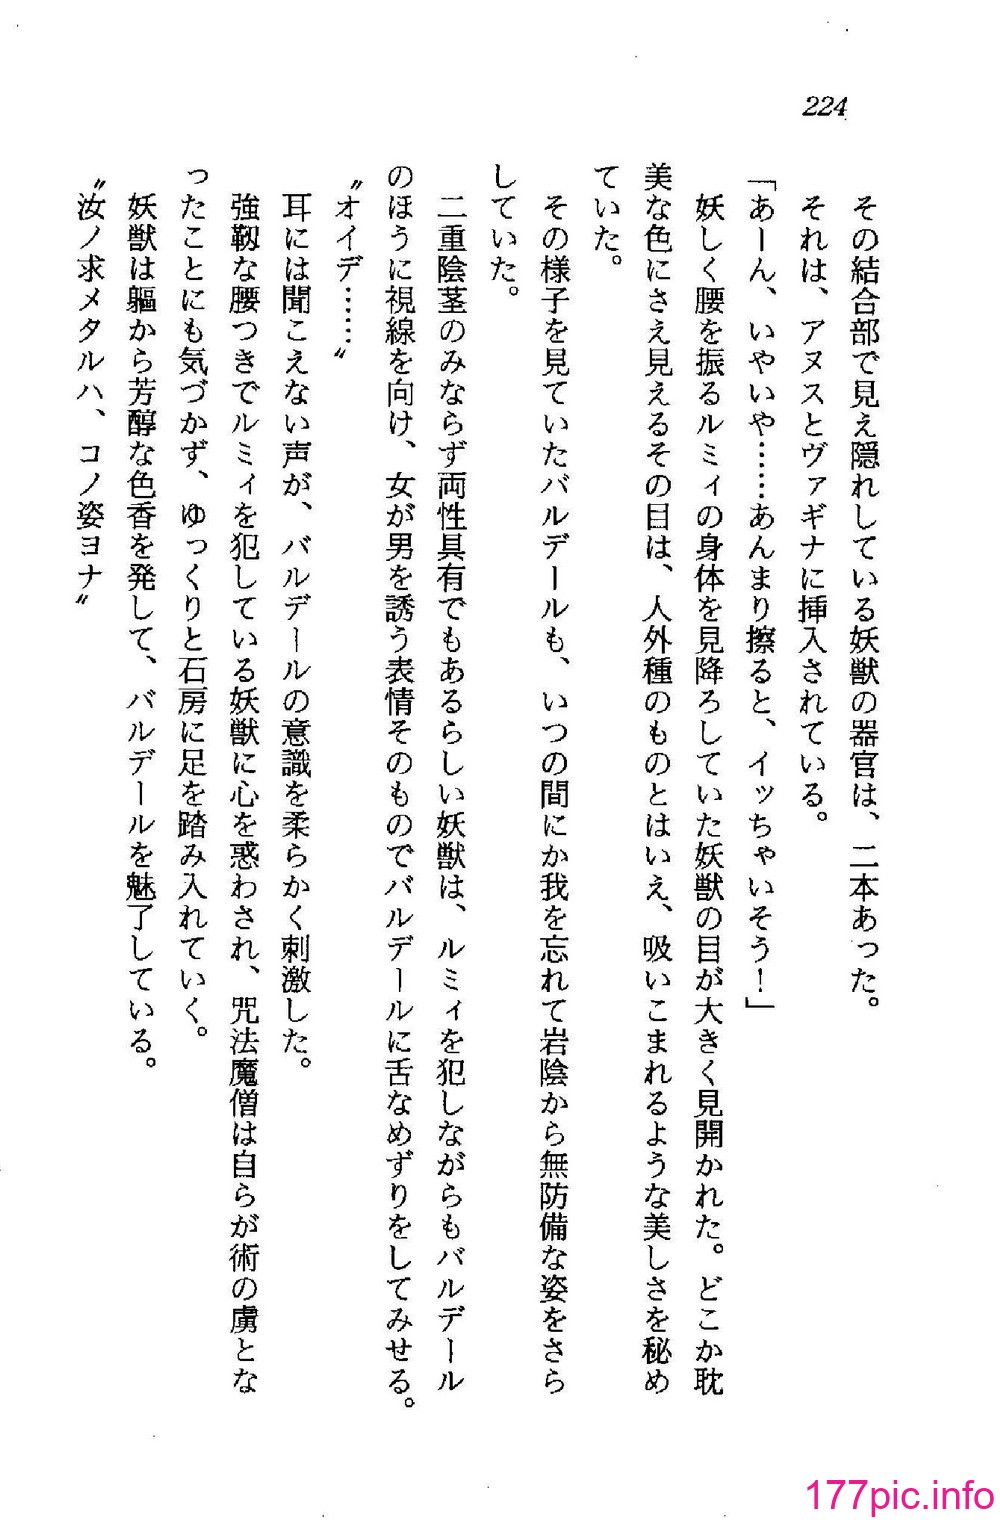 224
その結合部で見え隠れしている妖獣の器官は、二本あった。
それは、アヌスとヴァギナに挿入されている。
「あーん、いやいや……あんまり擦ると、イッちゃいそう！」
妖しく腰を振るルミィの身体を見降ろしていた妖獣の目が大きく見開かれた。どこか耽
美な色にさえ見えるその目は、人外種のものとはいえ、吸いこまれるような美しさを秘め
ていた。
その様子を見ていたバルデールも、いつの間にか我を忘れて岩陰から無防備な姿をさら
していた。
二重陰茎のみならず両性具有でもあるらしい妖獣は、ルミィを犯しながらもバルデール
のほうに視線を向け、女が男を誘う表情そのものでバルデールに舌なめずりをしてみせる。
〝オイデ……〟
耳には聞こえない声が、バルデールの意識を柔らかく刺激した。
強靱な腰つきでルミィを犯している妖獣に心を惑わされ、咒法魔僧は自らが術の虜とな
ったことにも気づかず、ゆっくりと石房に足を踏み入れていく。
妖獣は軀から芳醇な色香を発して、バルデールを魅了している。
〝汝ノ求メタルハ、コノ姿ヨナ〟
177pic.info